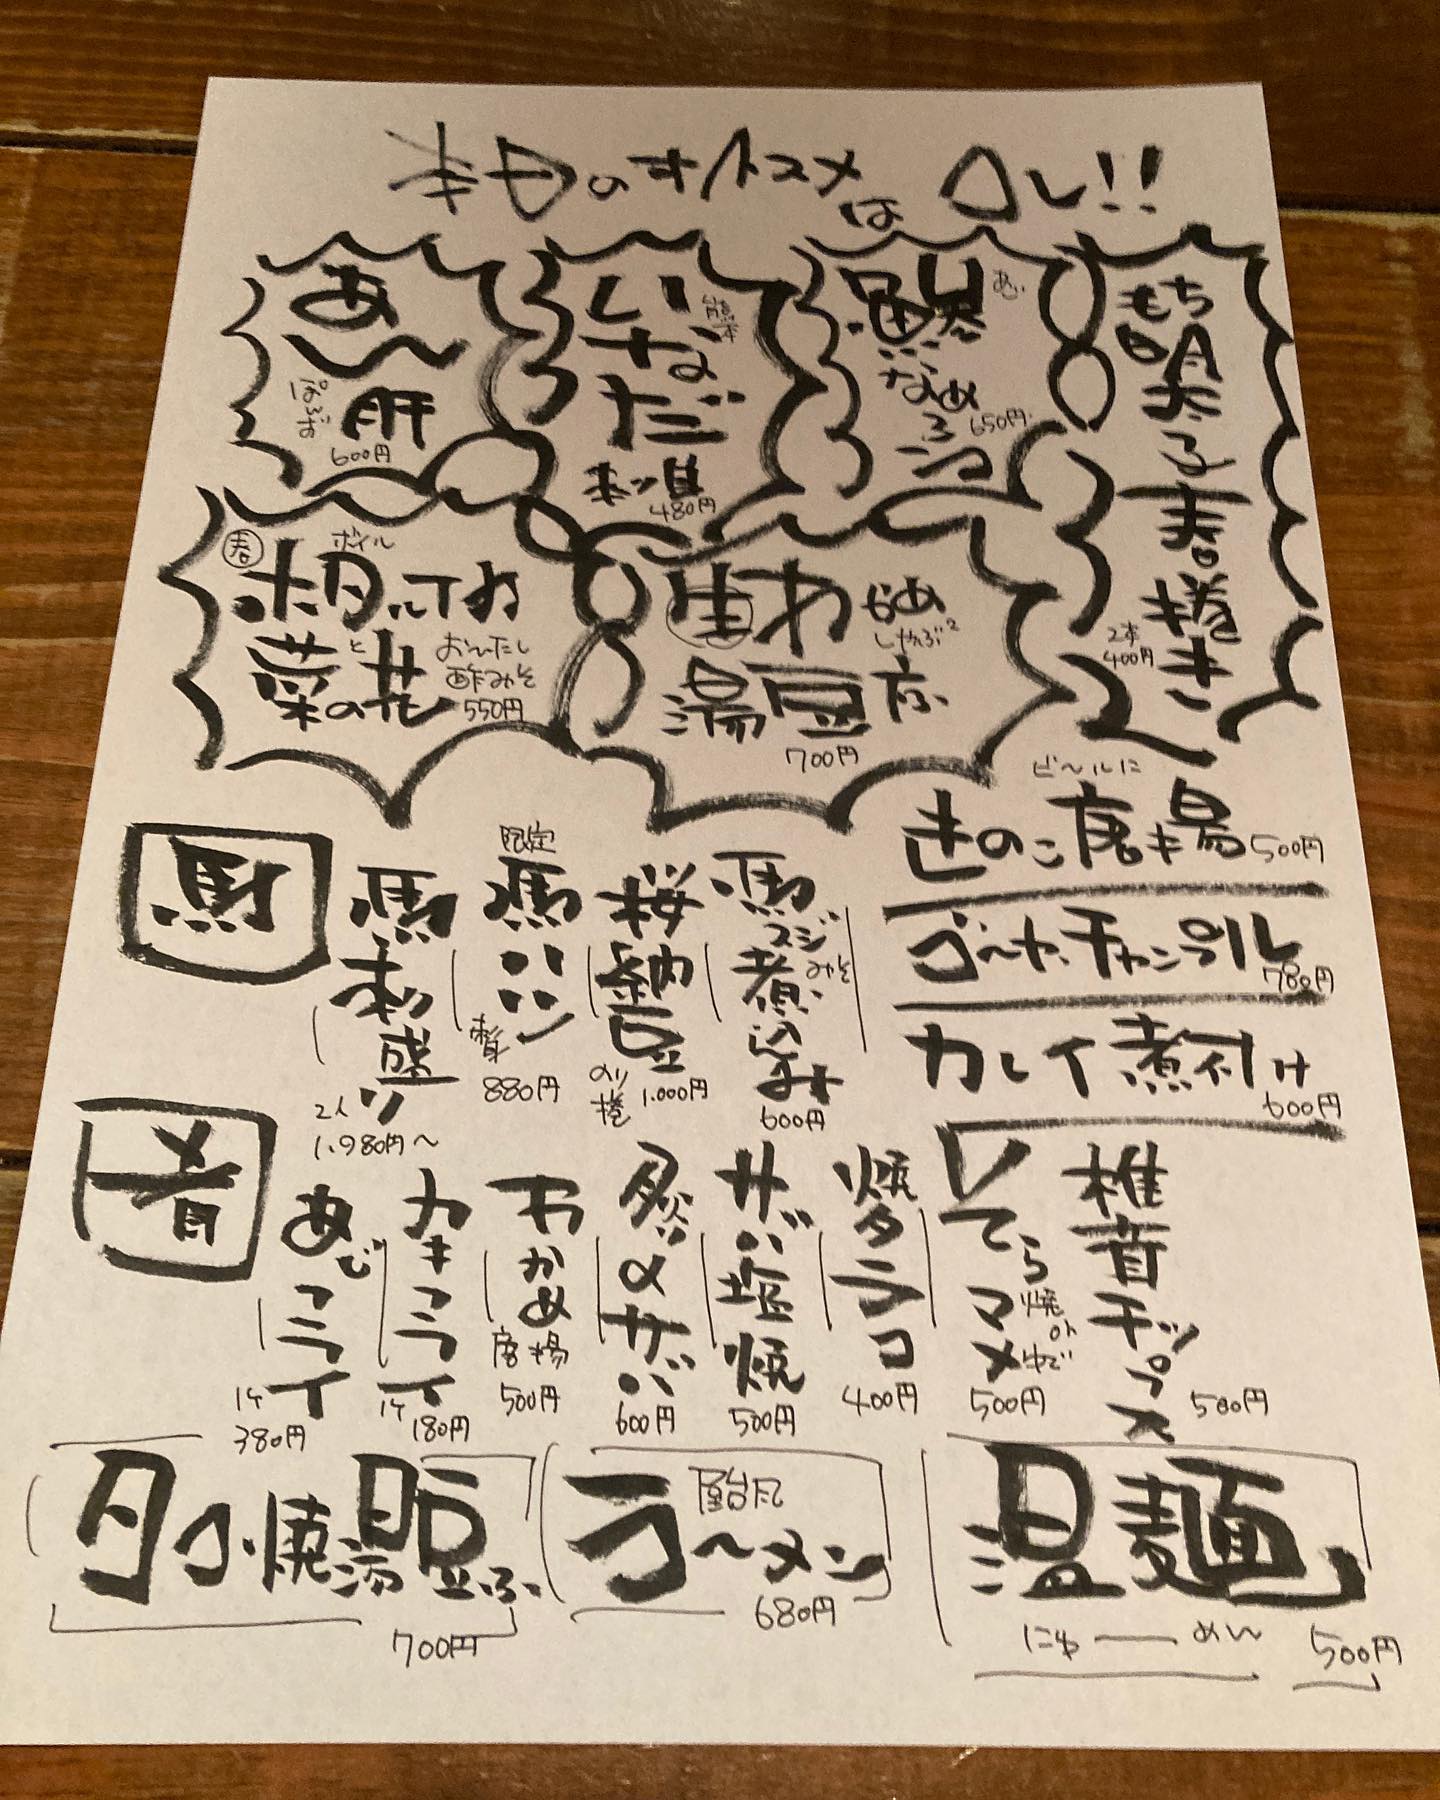 本日のオススメは コレ!!
もち明太子春捲き
2本
400円
あじ
なめろう
650円
熊本
いなだ
刺身
480円
あん肝
ぽんず
600円
生わかめ
しゃぶ2
湯豆ふ
700円
春
ボイル
ホタルイカ
と
菜の花
おひたし
酢みそ
550円
ビールに
きのこ唐揚
500円
ゴーヤチャンプル
780円
カレイ煮付け
600円
馬
馬刺盛り
2人
1.980円〜
限定
馬ハツ
刺身
880円
桜納豆
のり捲
1.000円
馬スジみそ煮込み
600円
肴
あじフライ
1ケ
380円
カキフライ
1ケ
180円
わかめ
唐揚
500円
炙〆サバ
600円
サバ塩焼
500円
焼タラコ
400円
そらマメ
焼 or ゆで
500円
椎茸チップス
500円
タコ焼湯豆ふ
700円
ラーメン
屋台風
680円
温麺
にゅーめん
500円